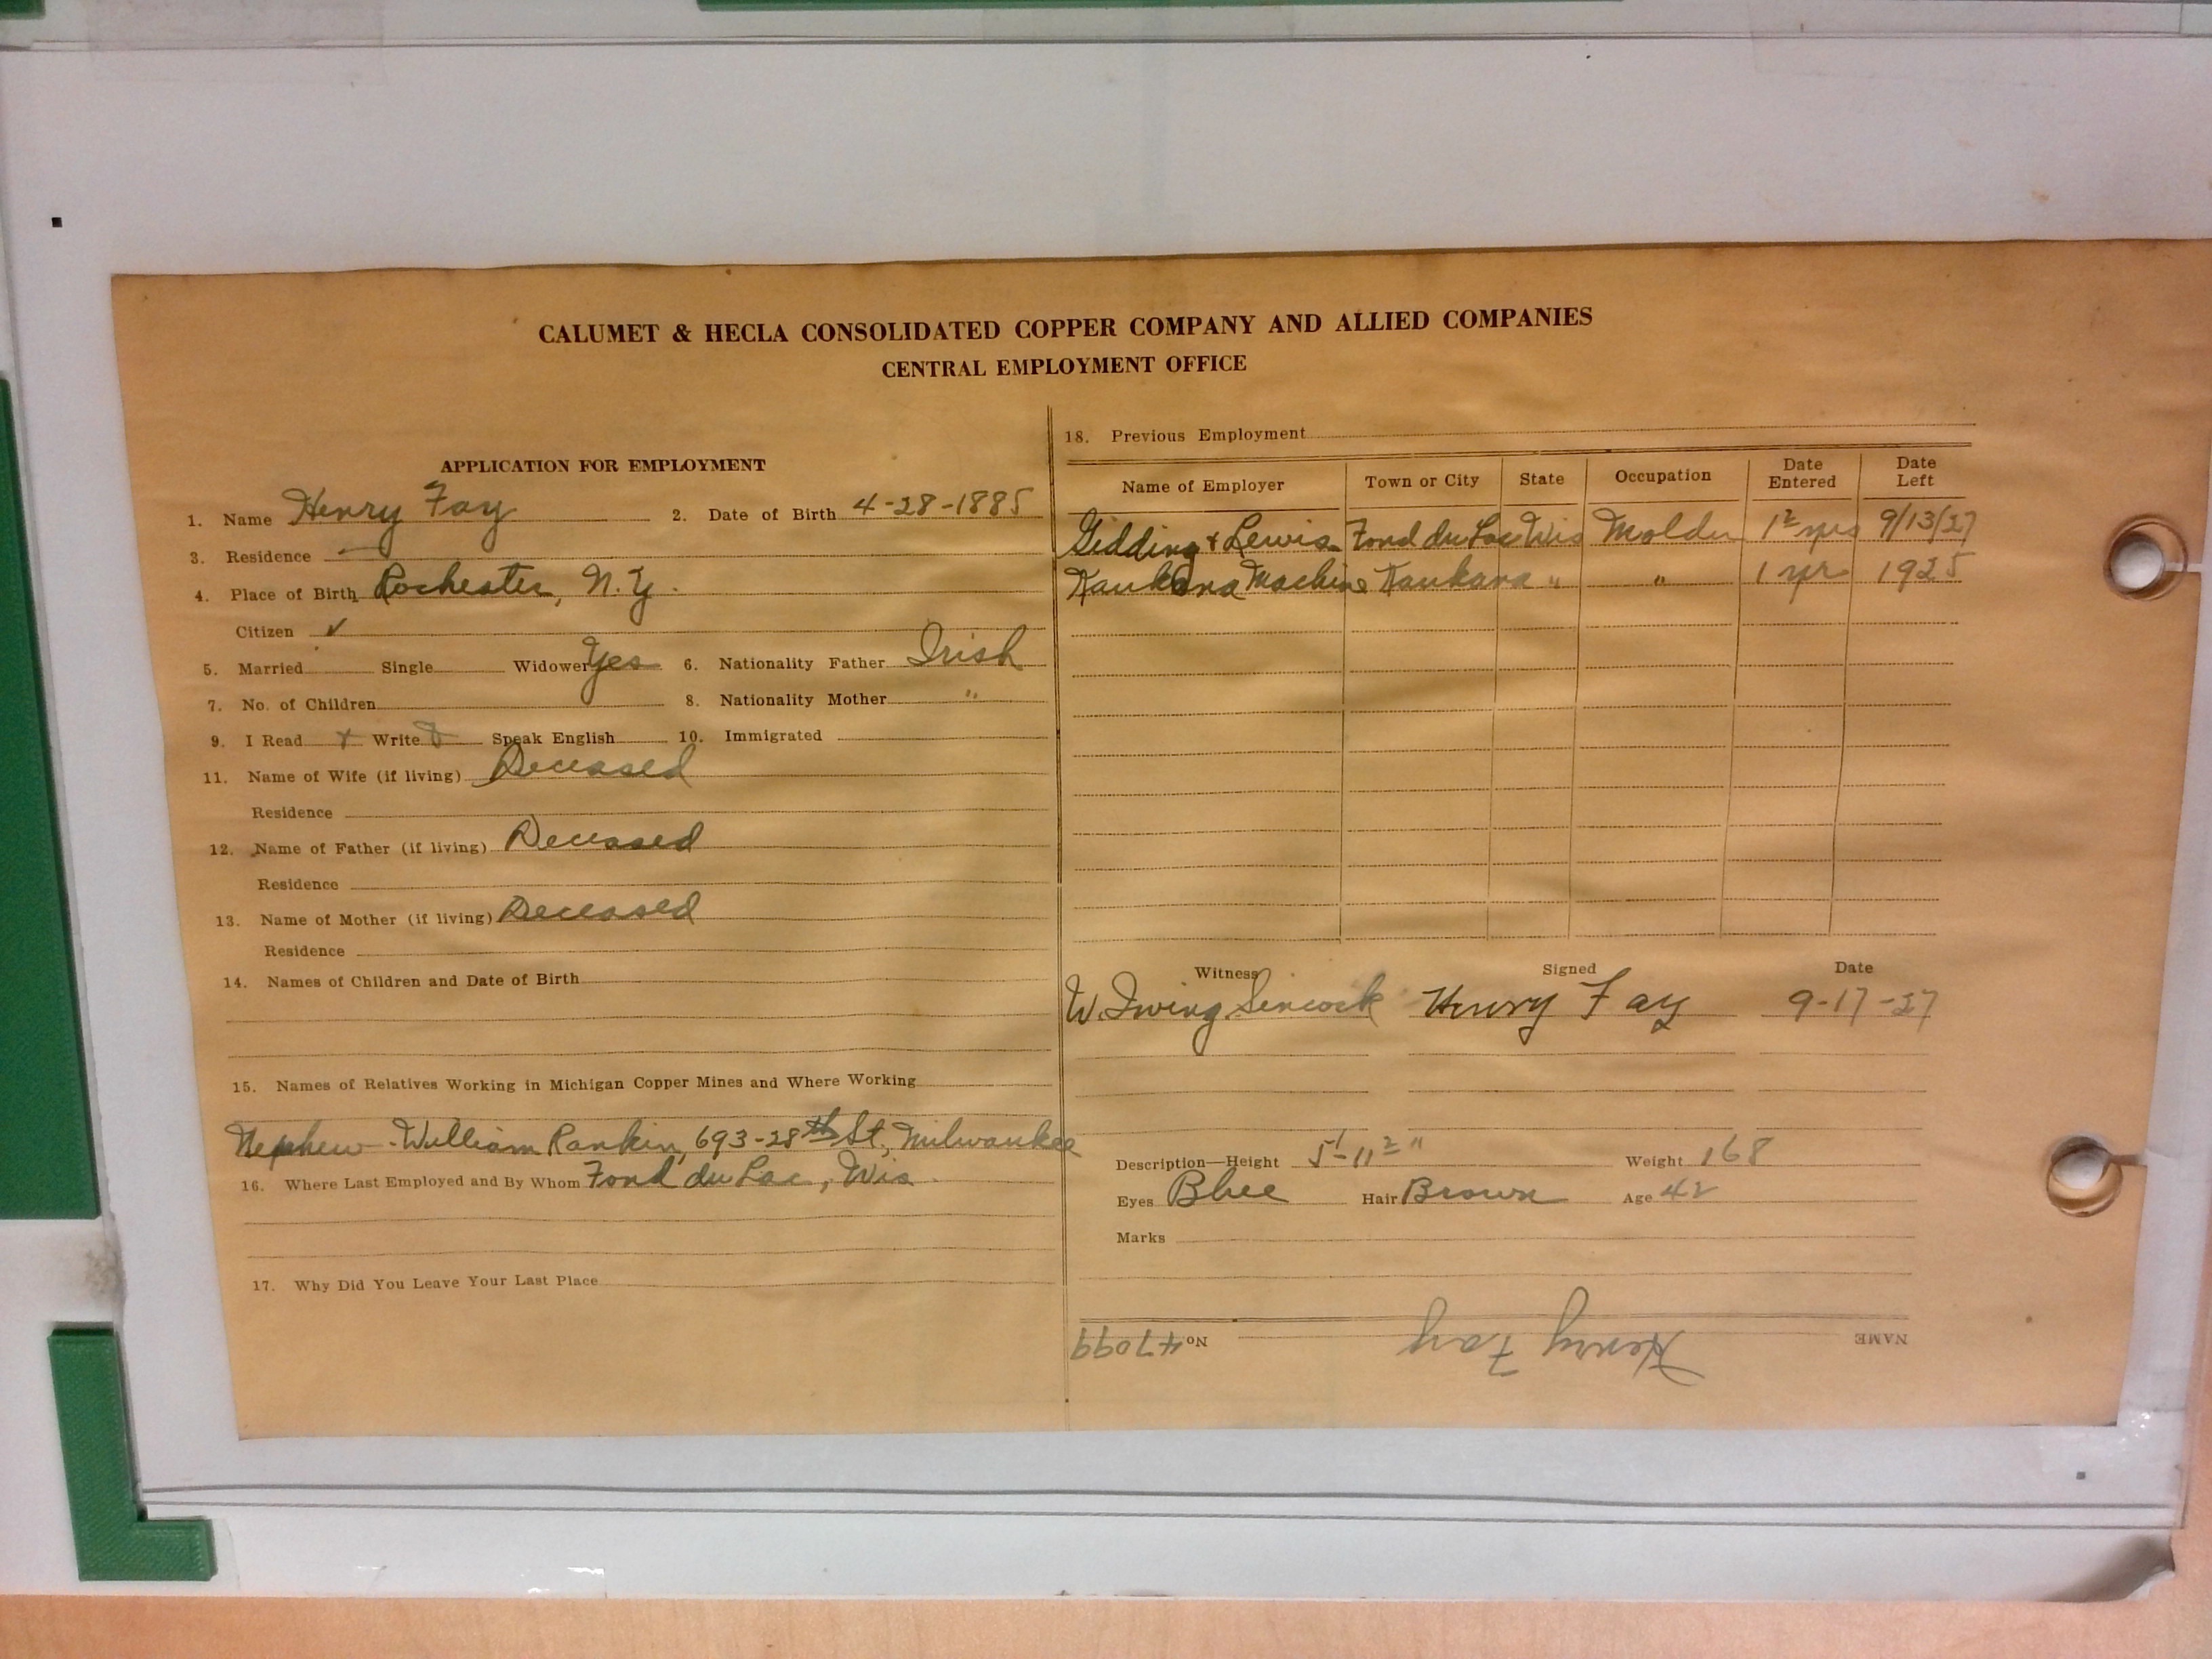 CALUMET & HECLA CONSOLIDATED COPPER COMPANY AND ALLIED COMPANIES
CENTRAL EMPLOYMENT OFFICE
APPLICATION FOR EMPLOYMENT
1. Name Henry Fay 2. Date of Birth 4-28-1885
3. Residence —
4. Place of Birth Rochester, N.Y.
Citizen ✓
5. Married Single Widower Yes 6. Nationality Father Irish
7. No. of Children 8. Nationality Mother "
9. I Read Write Speak English 10. Immigrated
11. Name of Wife (if living) Deceased
Residence
12. Name of Father (if living) Deceased
Residence
13. Name of Mother (if living) Deceased
Residence
14. Names of Children and Date of Birth
15. Names of Relatives Working in Michigan Copper Mines and Where Working
Nephew - William Rankin, 693-28th St., Milwaukee
16. Where Last Employed and By Whom Fond du Lac, Wis.
17. Why Did You Leave Your Last Place
18. Previous Employment
Name of Employer Town or City State Occupation Date Entered Date Left
Gidding & Lewis Fond du Lac Wis Molder 1½ yrs 9/13/27
Kaukana Machine Kaukana " " 1 yr 1925
Witness Signed Date
W. Irving Sincock Henry Fay 9-17-27
Description—Height 5'-11½" Weight 168
Eyes Blue Hair Brown Age 42
Marks
NAME Henry Fay No. 47099